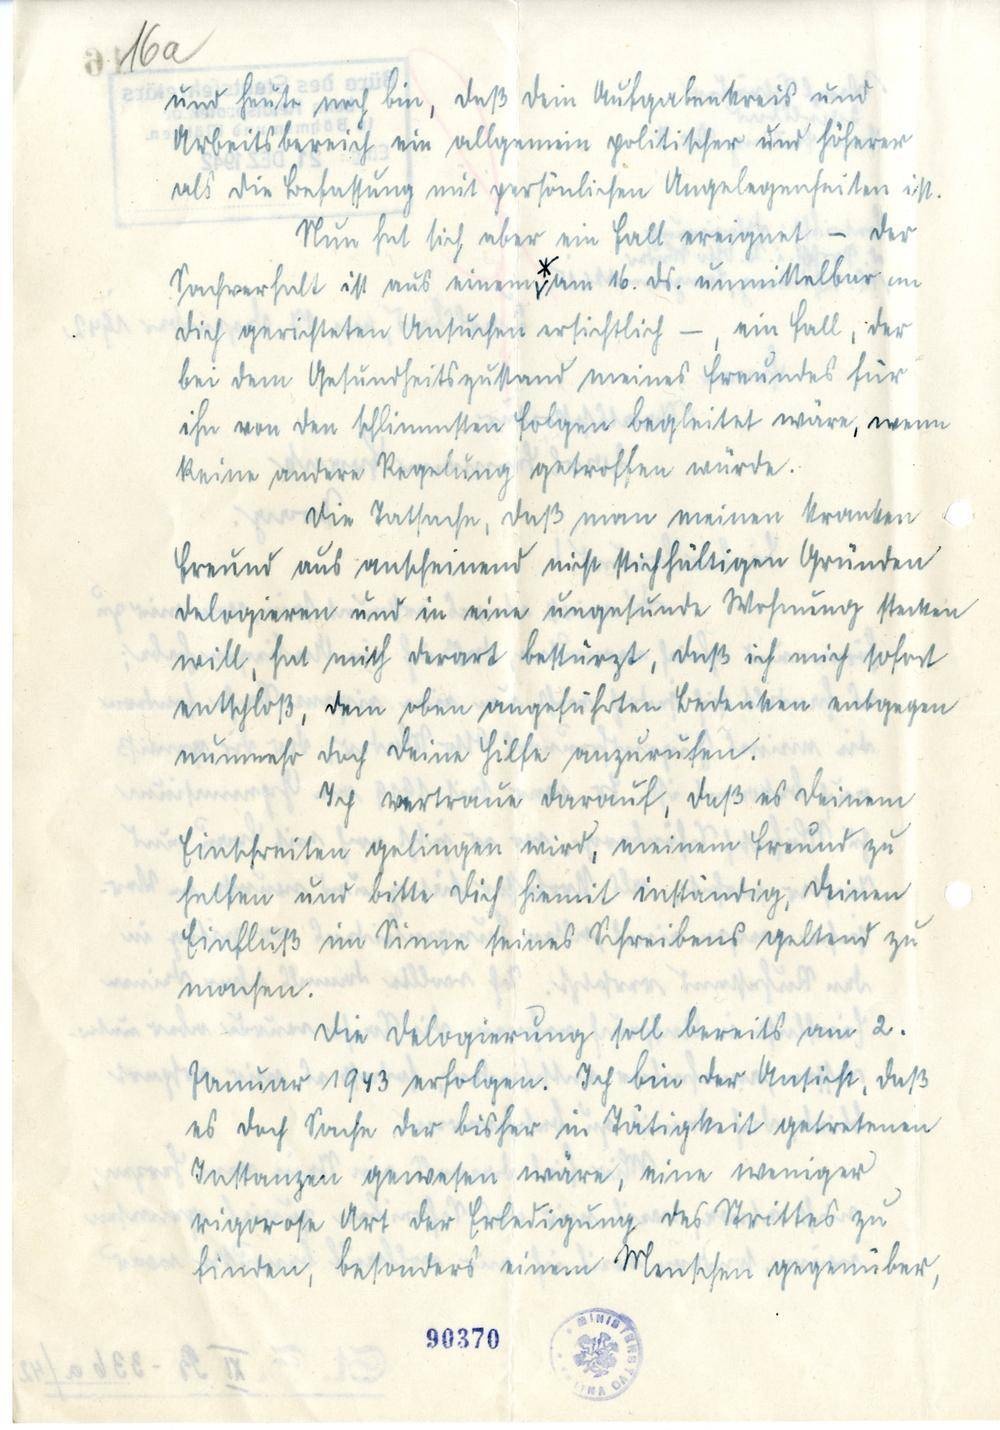 16a
und heute noch bin, daß dein Aufgabenkreis und
Arbeitsbereich ein allgemein politischer und höherer
als die Befassung mit persönlichen Angelegenheiten ist.
Nun hat sich aber ein Fall ereignet — der
Sachverhalt ist aus einem * am 16. ds. unmittelbar an
dich gerichteten Ansuchen ersichtlich —, ein Fall, der
bei dem Gesundheitszustand meines Freundes für
ihn von den schlimmsten Folgen begleitet wäre, wenn
keine andere Regelung getroffen würde.
Die Tatsache, daß man meinen kranken
Freund aus anscheinend nicht stichhältigen Gründen
delogieren und in eine ungesunde Wohnung stecken
will, hat mich derart bestürzt, daß ich mich sofort
entschloß, dem oben angeführten Bedenken entgegen
nunmehr doch deine Hilfe anzurufen.
Ich vertraue darauf, daß es deinem
Einschreiten gelingen wird, meinem Freund zu
helfen und bitte dich hiemit inständig, deinen
Einfluß im Sinne seines Schreibens geltend zu
machen.
Die Delogierung soll bereits am 2.
Januar 1943 erfolgen. Ich bin der Ansicht, daß
es doch Sache der bisher in Tätigkeit getretenen
Instanzen gewesen wäre, eine weniger
rigorose Art der Erledigung des Strittes zu
finden, besonders einem Menschen gegenüber,
90370
MINISTERSTVO VNITRA